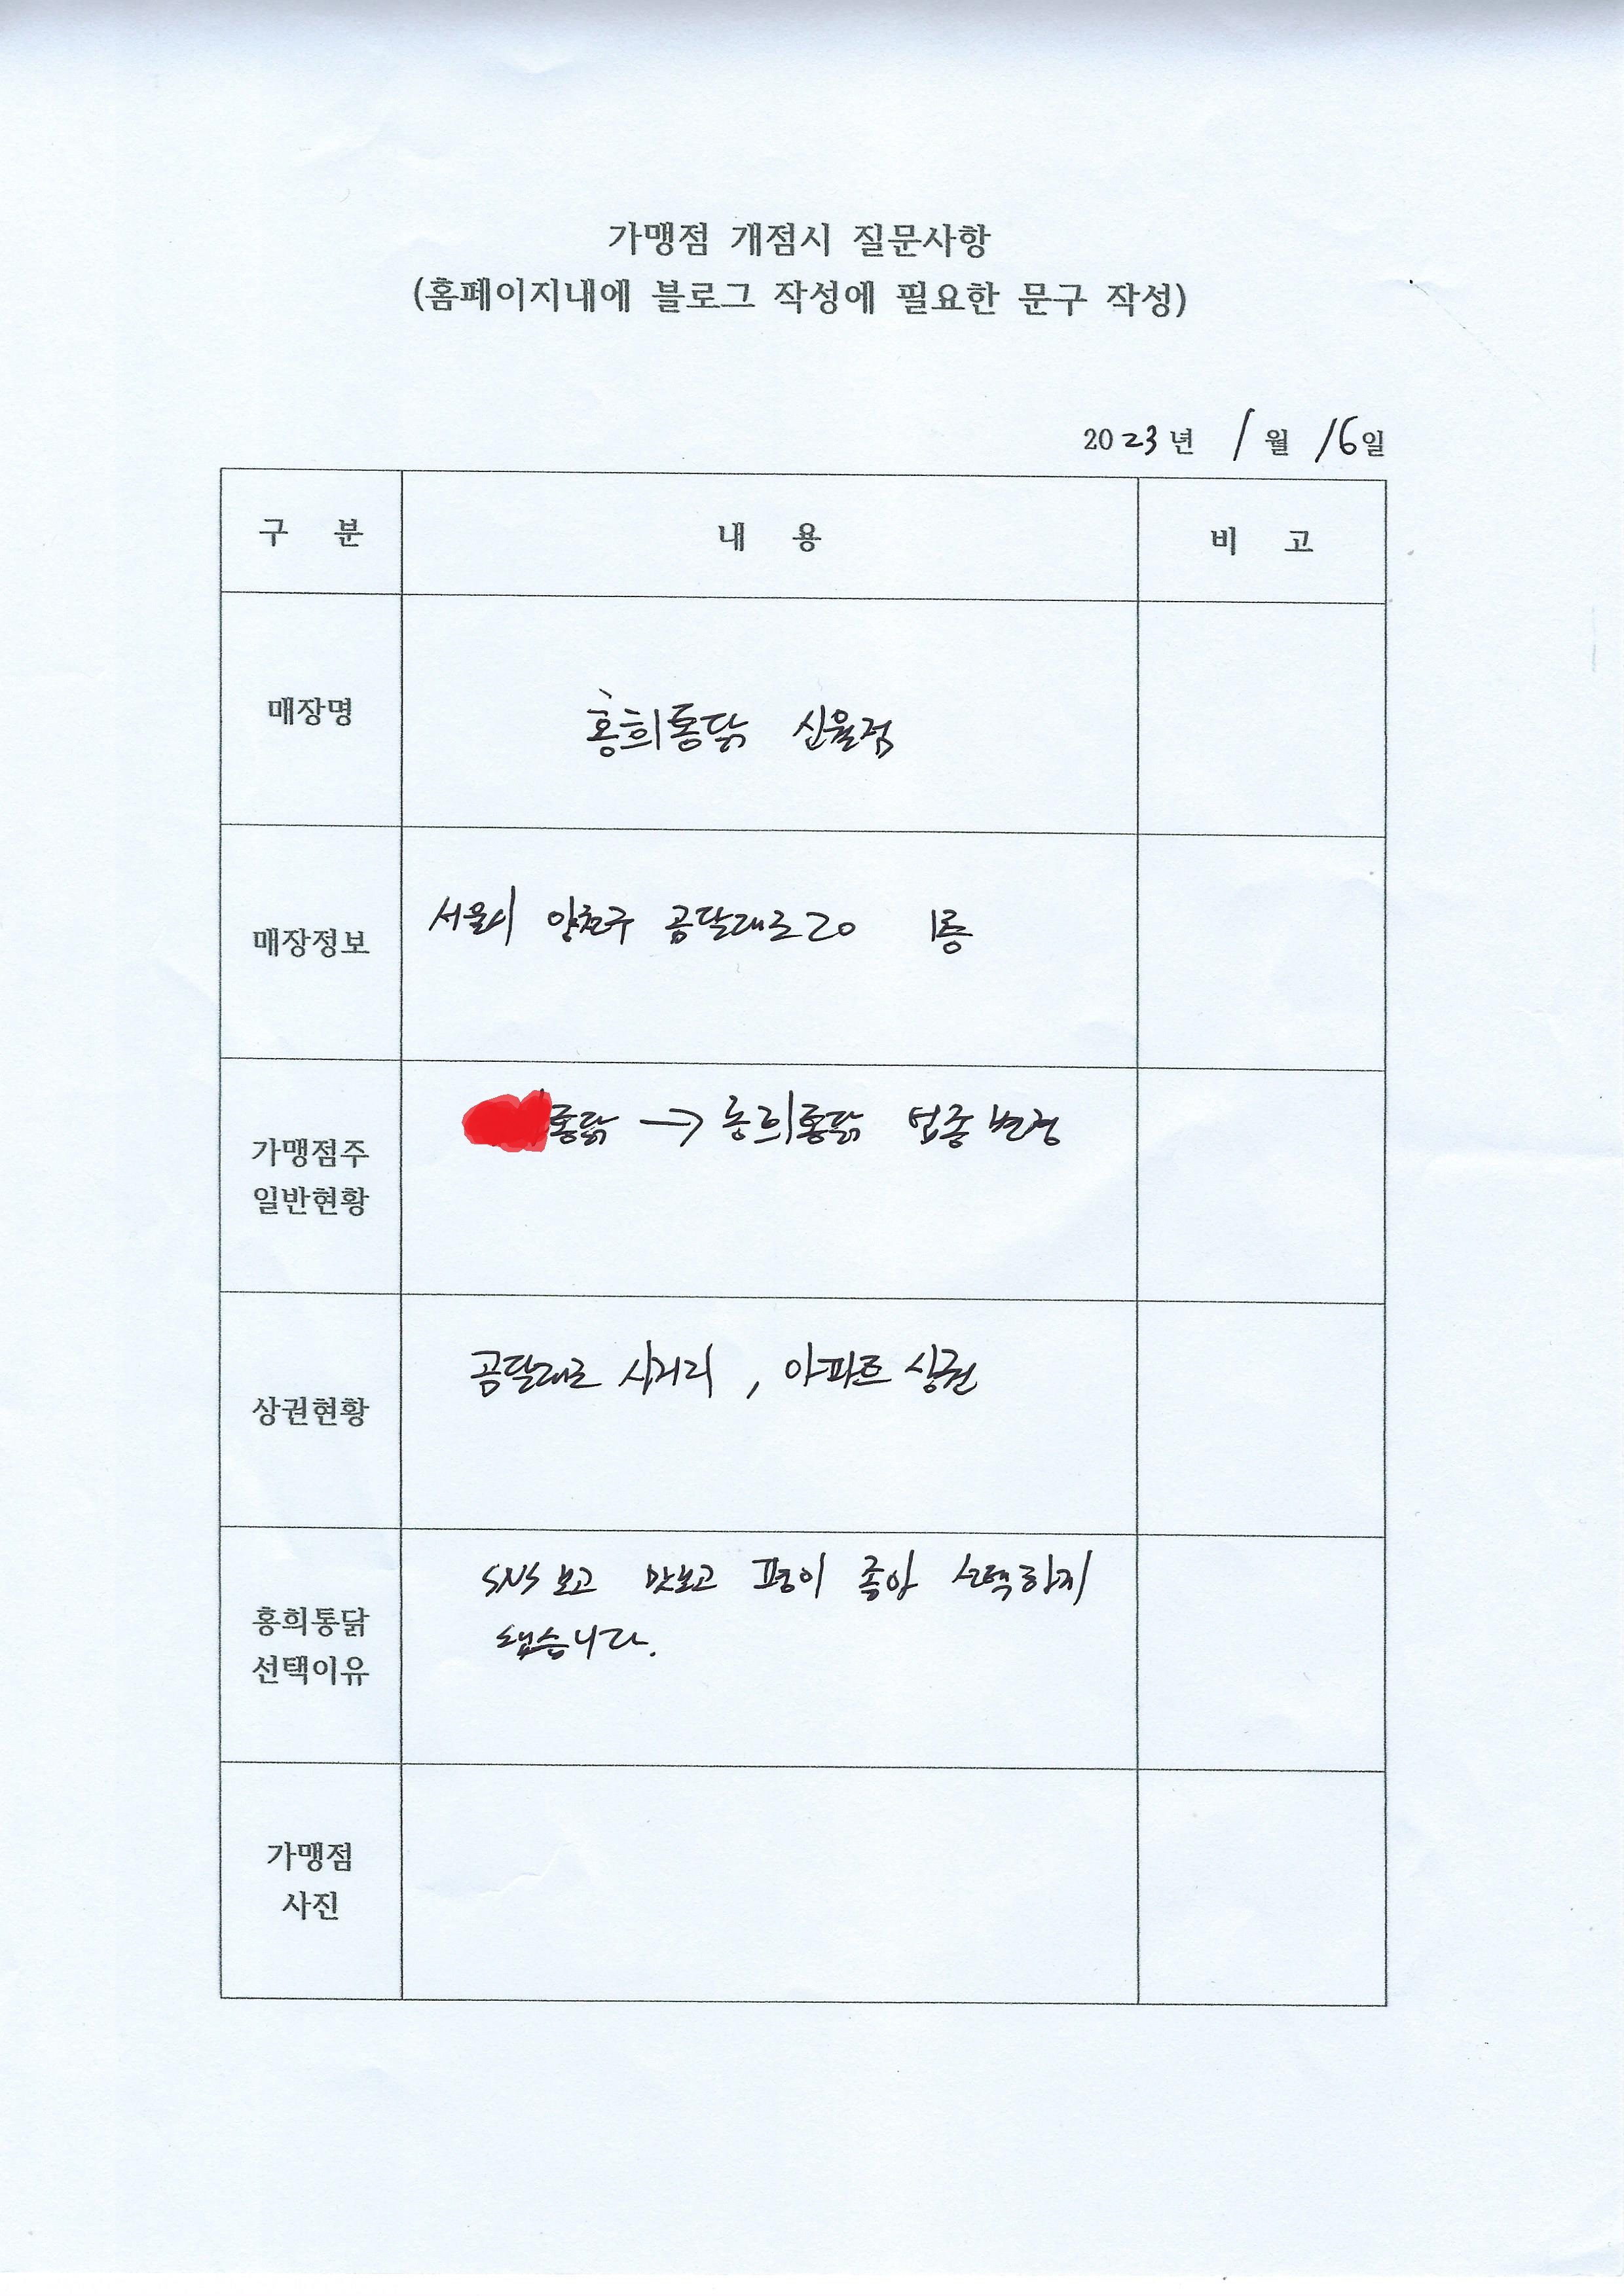 가맹점 개점시 질문사항
(홈페이지내에 블로그 작성에 필요한 문구 작성)
2023년 1월 16일
구 분 내 용 비 고
매장명 홍희통닭 신월점
매장정보 서울시 양천구 곰달래로20 1층
가맹점주
일반현황
통닭 → 홍희통닭 업종변경
상권현황 곰달래로 사거리, 아파트 상권
홍희통닭
선택이유
SNS보고 맛보고 평이 좋아 선택하게
됐습니다.
가맹점
사진